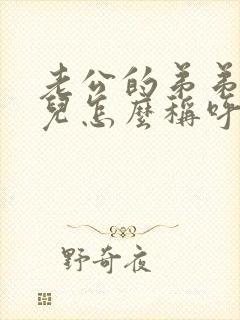 老公的弟弟
兒怎麼稱呼
野奇夜